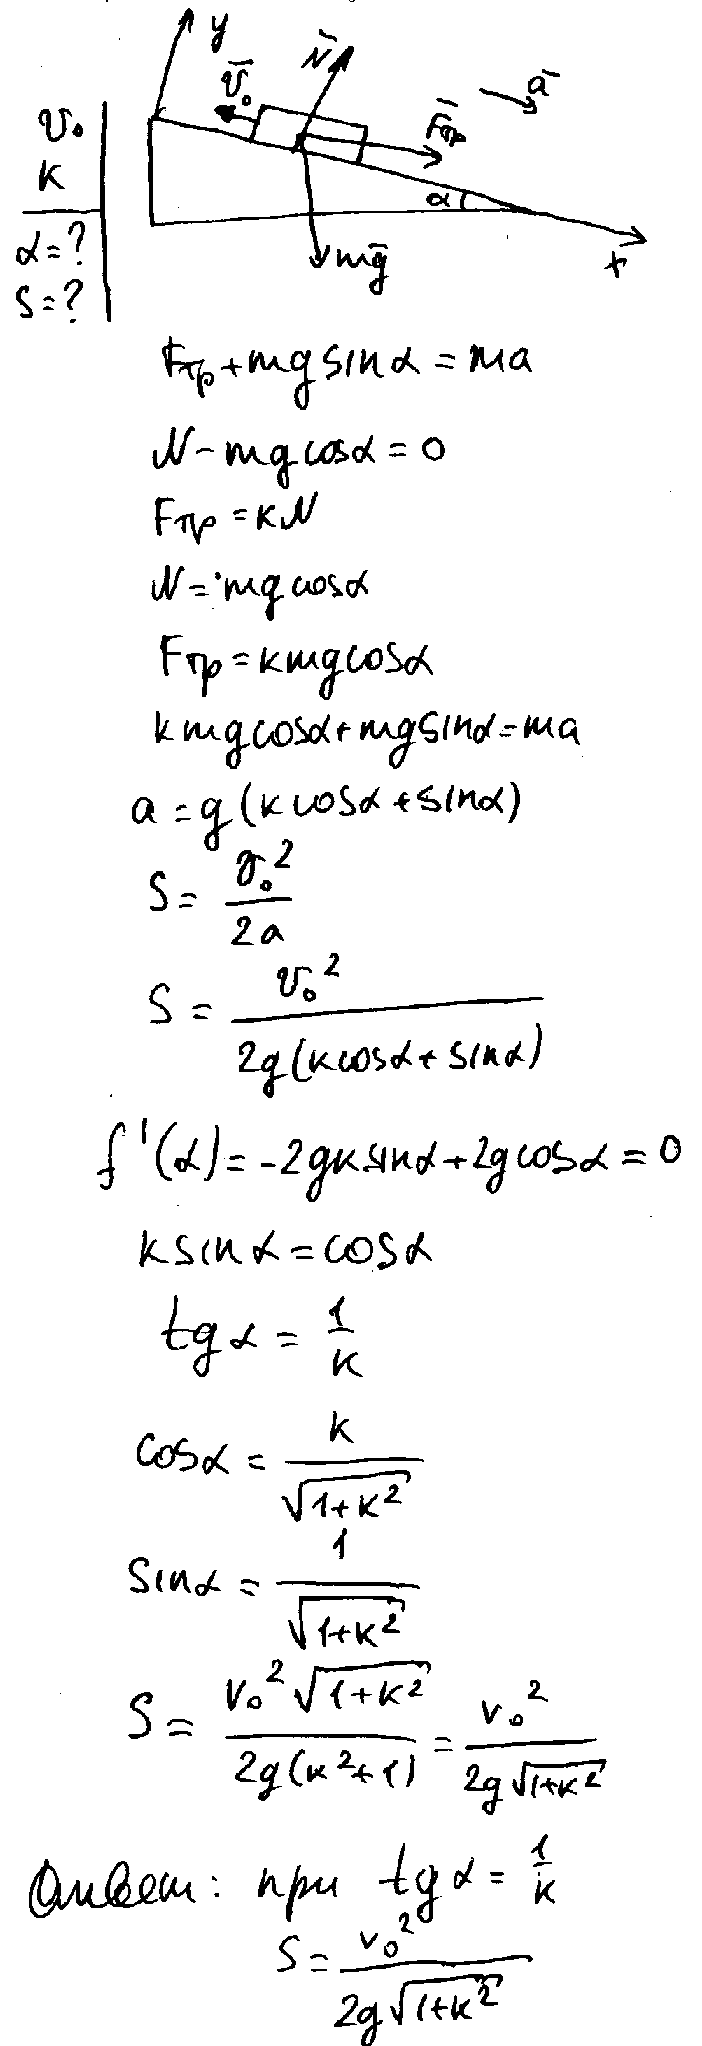 y
N̄
ā
v̄₀
F̄тр
v₀
k
α
α=?
mḡ
x
S=?
Fтр+mg sin α = ma
N-mg cos α = 0
Fтр = kN
N = mg cos α
Fтр = kmg cos α
kmg cos α + mg sin α = ma
a = g(k cos α + sin α)
S = v₀²/2a
S = v₀²/2g(k cos α + sin α)
f'(α) = -2gk sin α + 2g cos α = 0
k sin α = cos α
tg α = 1/k
cos α = k/√(1+k²)
sin α = 1/√(1+k²)
S = v₀²√(1+k²)/2g(k²+1) = v₀²/2g√(1+k²)
Ответ: при tg α = 1/k
S = v₀²/2g√(1+k²)